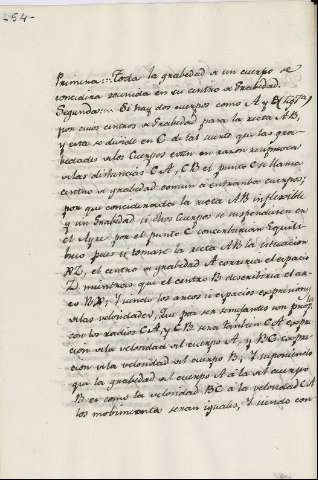 -54-
Primera... Toda la grabedad de un cuerpo se
considera reunida en su centro de Grabedad.
Segunda... Si hay dos cuerpos como A y B
por cuios centros de Grabedad para la recta AB,
y esta se divide en C de tal suerte que las gra-
bedades de los Cuerpos estén en razon reciproca
de las distancias CA, CB el punto C se llama
centro de grabedad comun a entrambos cuerpos;
por que considerando la recta AB inflexible
y sin Grabedad si dhos Cuerpos se suspendiesen en
el Ayre por el punto C conserbarian Equili-
brio pues si tomase la recta AB la situacion
el centro de grabedad A correria el espacio
Z mientras que el centro B describiria el ar-
co; Y siendo los arcos ó espacios expresion
de las velocidades, que por ser semejantes son prop.
con los radios CA, y CB será tambien CA expre-
cion de la velocidad del cuerpo A, y BC expre-
cion de la velocidad del cuerpo B; Y suponiendo
que la grabedad del cuerpo A á la del cuerpo
B es como la velocidad BC á la velocidad CA
los mobimientos seran iguales, Y siendo con